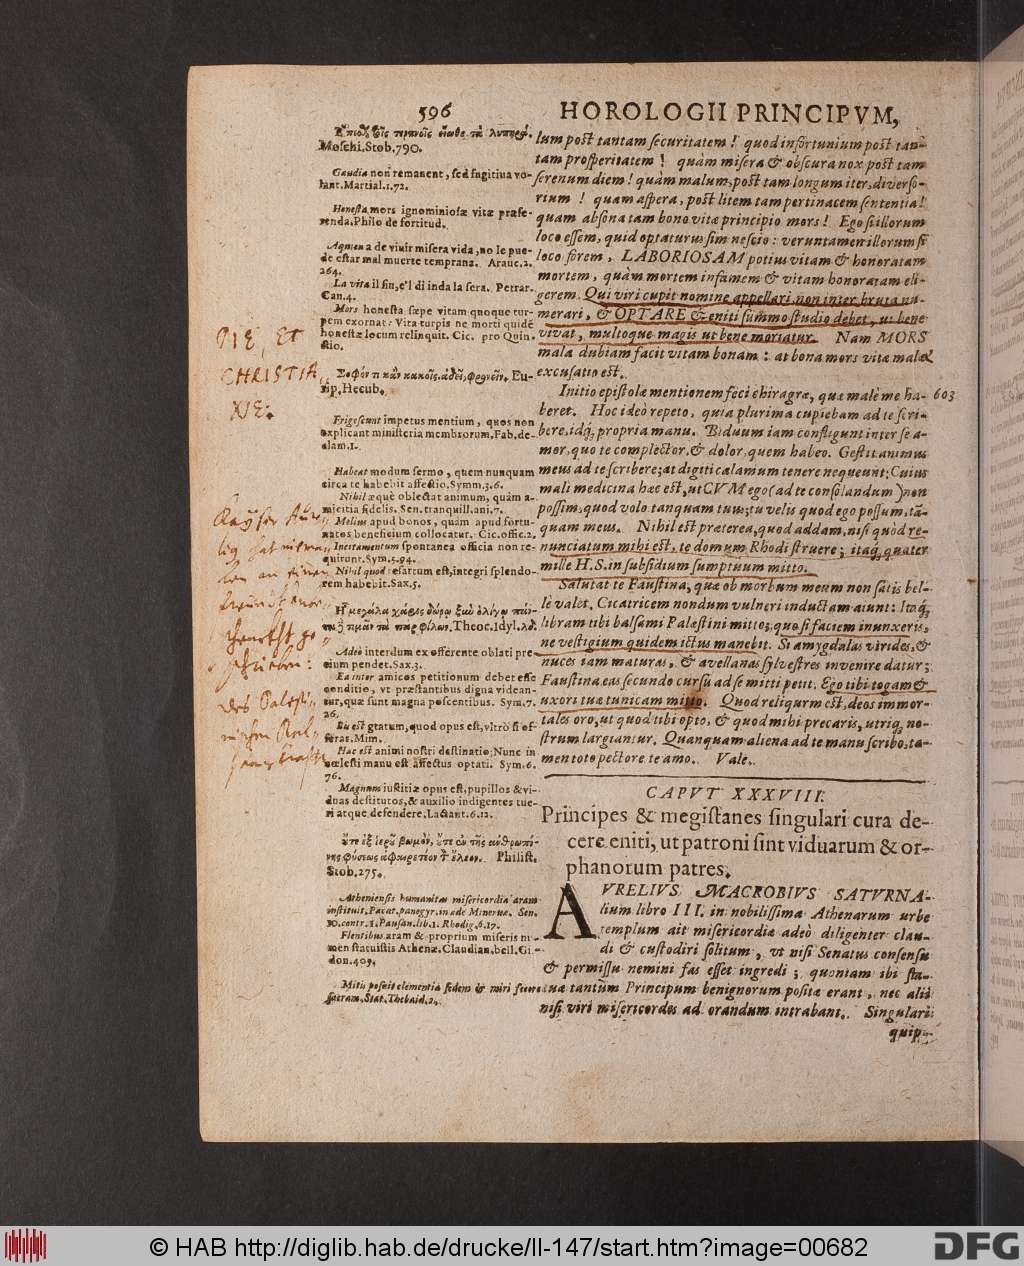 596
HOROLOGII PRINCIPVM,
lum post tantam securitatem! quod infortunium post tan-
tam prosperitatem! quàm misera & obscura nox post tam
serenum diem! quàm malum, post tam longum iter, diverso-
rium! quam aspera, post litem tam pertinacem sententia!
quam absona tam bono vitæ principio mors! Ego si illorum
loco essem, quid optaturus sim nescio: veruntamen illorum si
loco forem, LABORIOSAM potius vitam & honoratam
mortem, quàm mortem infamem & vitam honoratam eli-
gerem. Qui viri cupit nomine appellari, non inter bruta nu-
merari, & OPTARE & eniti summo studio debet, ut bene
vivat, multoque magis ut bene moriatur. Nam MORS
mala dubiam facit vitam bonam: at bona mors vitæ malæ
excusatio est.
Initio epistolæ mentionem feci chiragræ, quæ malè me ha-
beret. Hoc ideò repeto, quia plurima cupiebam ad te scri-
bere, idq; propria manu. Biduum iam confligunt inter se a-
mor, quo te complector, & dolor, quem habeo. Gestit animus
meus ad te scribere; at digiti calamum tenere nequeunt: Cuius
mali medicina hæc est, ut CVM ego (ad te consolandum) non
possim, quod volo tanquam tuus; tu velis quod ego possum, tã-
quam meus. Nihil est præterea, quod addam, nisi quòd re-
nunciatum mihi est, te domum Rhodi struere; itaq; quater
mille H.S. in subsidium sumptuum mitto.
Salutat te Faustina, quæ ob morbum meum non satis bel-
lè valet. Cicatricem nondum vulneri inductam aiunt: Itaq;
libram tibi balsami Palæstini mitto; quo si faciem inunxeris,
ne vestigium quidem ictus manebit. Si amygdalas virides, &
nuces iam maturas, & avellanas sylvestres invenire datur;
Faustina eas secundo cursu ad se mitti petit. Ego tibi togam &
uxori tuæ tunicam mitto. Quod reliqum est, deos immor-
tales oro, ut quod tibi opto, & quod mihi precaris, utriq; no-
strum largiantur. Quanquam aliena ad te manu scribo, ta-
men toto pectore te amo. Vale.
603
CAPVT XXXVIII.
Principes & megistanes singulari cura de-
cere eniti, ut patroni sint viduarum & or-
phanorum patres.
AVRELIVS MACROBIVS SATVRNA-
lium libro III. in nobilissima Athenarum urbe
templum ait misericordiæ adeò diligenter clau-
di & custodiri solitum, vt nisi Senatus consensu
& permissu nemini fas esset ingredi; quoniam ibi sta-
tuæ tantùm Principum benignorum positæ erant, nec alii
nisi viri misericordes ad orandum intrabant. Singulari
quip-
Moschi, Stob. 790.
Gaudia non remanent, sed fugitiva vo-
lant. Martial. 1. 72.
Honesta mors ignominiosæ vitæ præfe-
renda. Philo de fortitud.
Aquien a de viuir misera vida, no le pue-
de estar mal muerte temprana. Arauc. 2.
264.
La vita il fin, e'l di inda la sera. Petrar.
Can. 4.
Mors honesta sæpe vitam quoque tur-
pem exornat: Vita turpis ne morti quidẽ
honestæ locum relinquit. Cic. pro Quin-
ctio.
PIE, ET
CHRISTIA,
Eu-
rip. Hecub.
Frigescunt impetus mentium, quos non
explicant ministeria membrorum. Fab. de-
clam. 1.
Habeat modum sermo, quem nunquam
circa te habebit affectio. Symm. 3. 6.
Nihil æquè oblectat animum, quàm a-
micitia fidelis. Sen. tranquill. ani. 7.
Melius apud bonos, quàm apud fortu-
natos beneficium collocatur. Cic. offic. 2.
Incitamentum spontanea officia non re-
quirunt. Sym. 5. 94.
Nihil quod resartum est, integri splendo-
rem habebit. Sax. 5.
Theoc. Idyl.
Adeò interdum ex offerente oblati pre-
cium pendet. Sax. 3.
Ea inter amicos petitionum debet esse
conditio, vt præstantibus digna videan-
tur, quæ sunt magna poscentibus. Sym. 7.
26.
Bis est gratum, quod opus est, vltrò si of-
feras. Mim.
Hac est animi nostri destinatio; Nunc in
scelesti manu est affectus optati. Sym. 6.
76.
Magnum iustitiæ opus est, pupillos & vi-
duas destitutos, & auxilio indigentes tue-
ri atque defendere. Lactant. 6. 12.
Philist.
Stob. 275.
Atheniensis humanitas misericordiæ aram
instituit. Pacat. panegyr. in æde Minervæ. Sen.
10. contr. 5. Pausan. lib. 1. Rhodig. 6. 17.
Flentibus aram & proprium miseris nu-
men statuistis Athenæ. Claudian. bell. Gi-
don. 405.
Mitis posuit clementia sedem & miri fecere
sacram. Stat. Thebaid. 24.
© HAB http://diglib.hab.de/drucke/ll-147/start.htm?image=00682
DFG